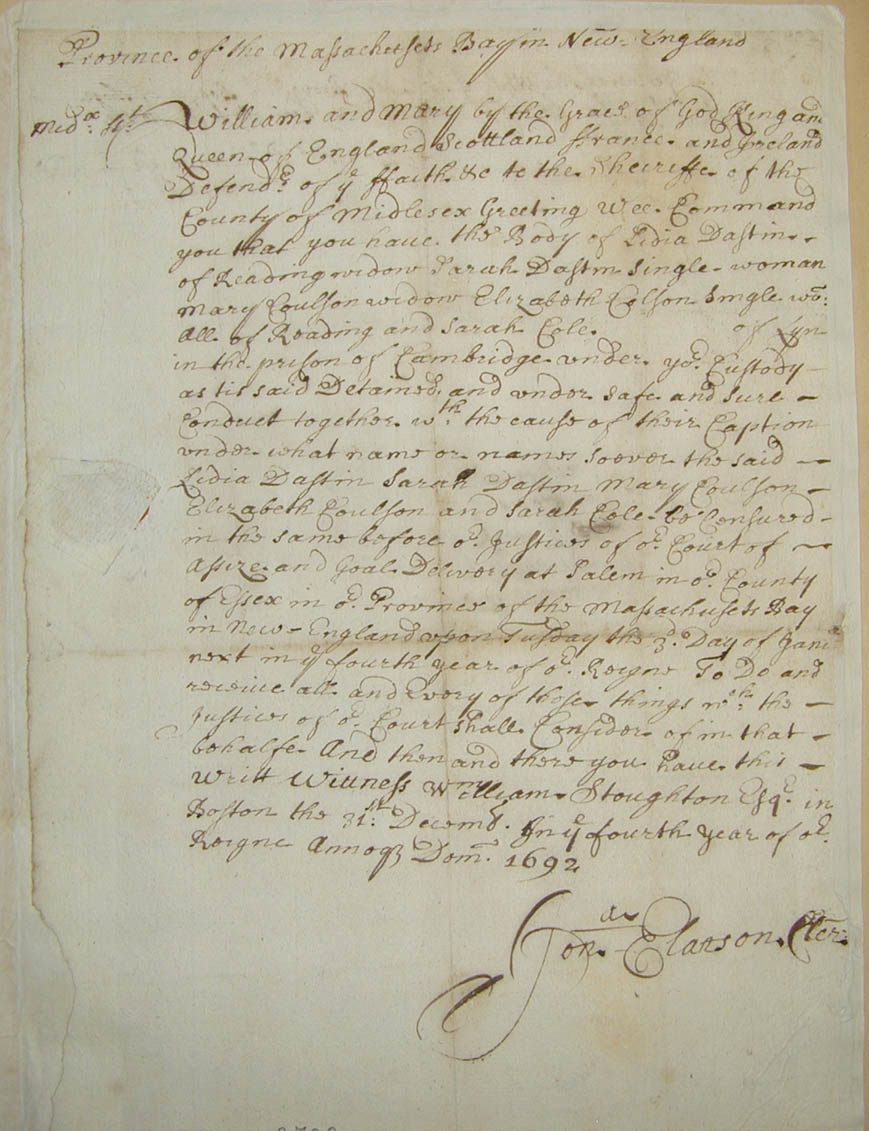 Province of the Massachusets Bay in New=England
Midx. Sct.
William and Mary by the Grace of God King and
Queen of England Scottland ffrance and Ireland
Defendrs of ye ffaith &c to the Sheriffe of the
County of Midlesex Greeting Wee Command
you that you have the Body of Lidia Dastin -
of Reading widow Sarah Dastin Single woman
Mary Coulson widow Elizabeth Colson Single wo:
all of Reading and Sarah Cole of Lyn
in the prison of Cambridge vnder yor Custody
as tis said Detained, and vnder safe and sure -
Conduct together wth. the cause of their Caption
vnder what name or names soever the said -
Lidia Dastin Sarah Dastin Mary Coulson -
Elizabeth Coulson and Sarah Cole be Censured -
in the same before or Justices of or Court of -
Assize and Goal Delivery at Salem in or County
of Essex in or Province of the Massachusets Bay
in New-England vpon Tusday the 3d. Day of Janr
next in ye fourth year of or Reigne To Do and
receive all and Every of those things wch. the -
Justices of or Court shall Consider of in that -
behalfe And then and there you have this -
Writt Wittness William Stoughton Esqr. in
Boston the 31st. Decembr. In ye fourth year of or.
Reigne Annoq Dom. 1692
Jona. Elatson. Cler: